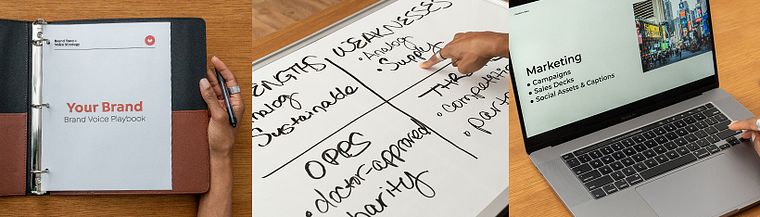 Brand Tone +
Voice Strategy
Your Brand
Brand Voice Playbook
ENGTHS
nalog
Sustainable
WEAKNESSES
• Analog
• Supply
OPPS
• doctor-approved
charity
THR
• Competiti
• part
Marketing
• Campaigns
• Sales Decks
• Social Assets & Captions